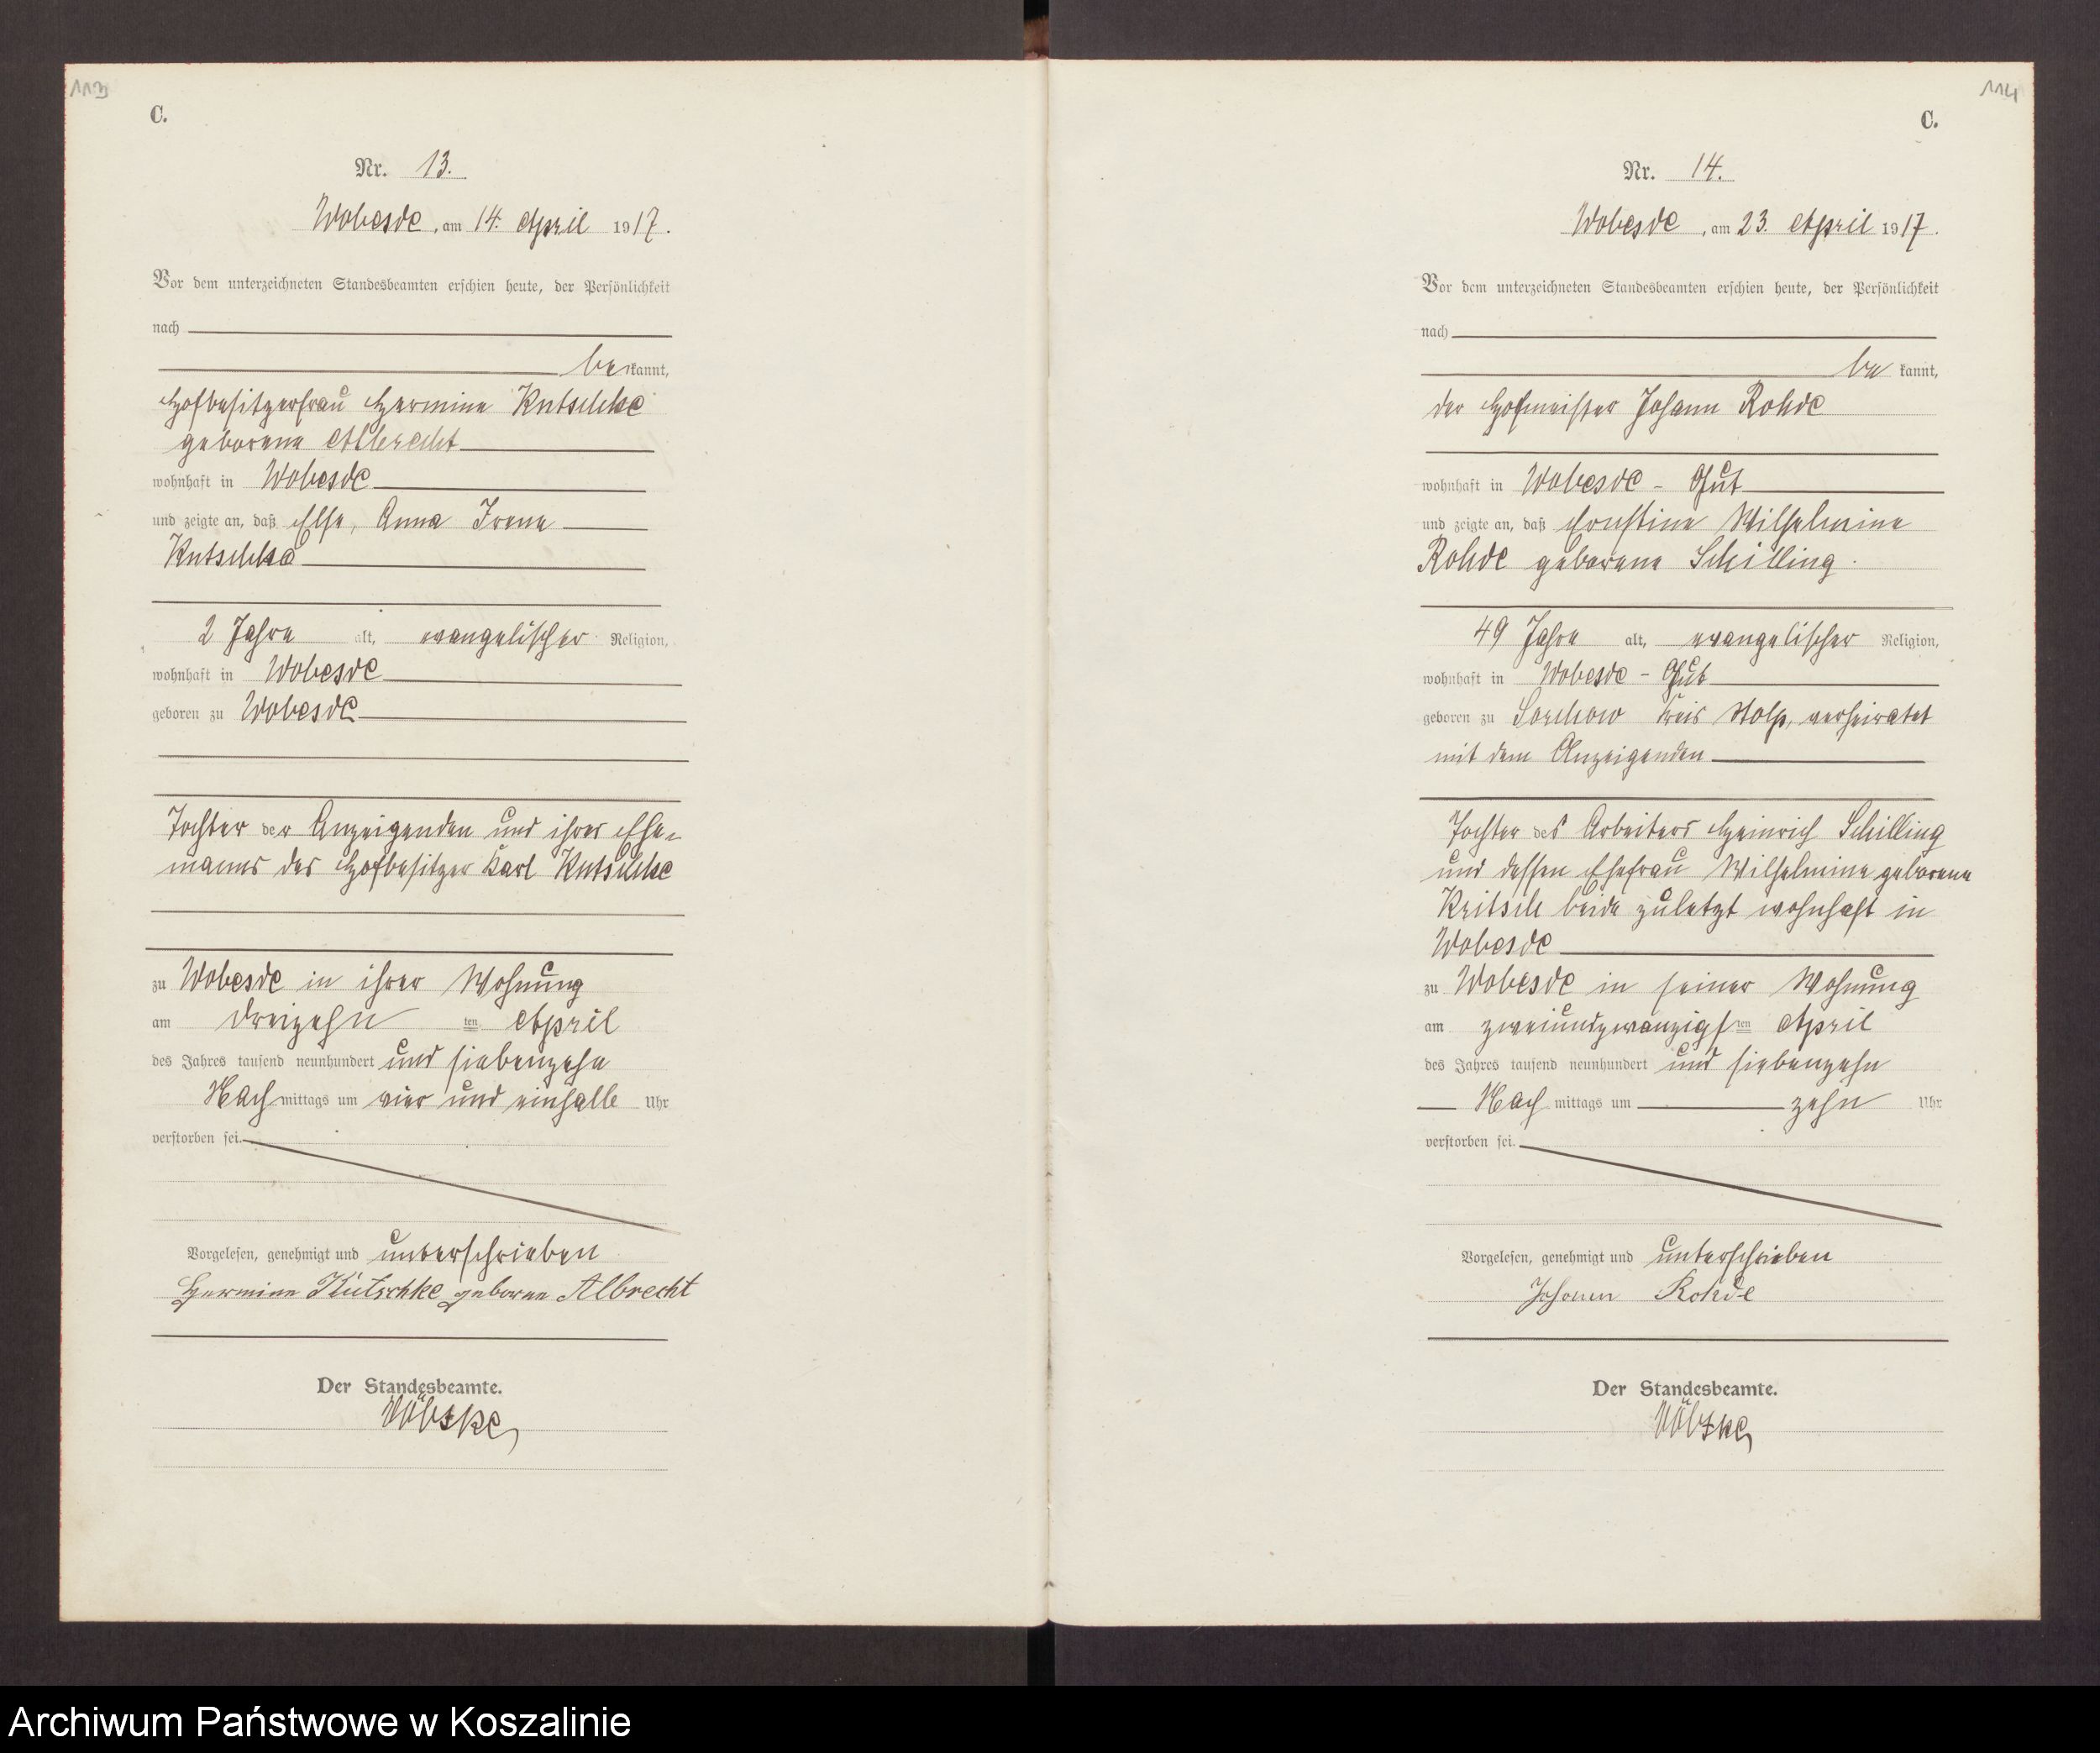 113
C.
Nr. 13.
Wobesde, am 14. April 1917.
Vor dem unterzeichneten Standesbeamten erschien heute, der Persönlichkeit
nach
bekannt,
Hofbesitzerfrau Hermine Kutschke
geborene Albrecht
wohnhaft in Wobesde
und zeigte an, daß Else, Anna Irene
Kutschke
2 Jahre alt, evangelischer Religion,
wohnhaft in Wobesde
geboren zu Wobesde
Tochter der Anzeigenden und ihres Ehe-
manns des Hofbesitzer Karl Kutschke
zu Wobesde in ihrer Wohnung
am dreizehn ten April
des Jahres tausend neunhundert und siebenzehn
Nachmittags um vier und einhalb Uhr
verstorben sei.
Vorgelesen, genehmigt und unterschrieben
Hermine Kutschke geborne Albrecht
Der Standesbeamte.
114
C.
Nr. 14.
Wobesde, am 23. April 1917.
Vor dem unterzeichneten Standesbeamten erschien heute, der Persönlichkeit
nach
bekannt,
der Hofmeister Johann Rohde
wohnhaft in Wobesde - Gut
und zeigte an, daß Ernstine Wilhelmine
Rohde geborene Schilling.
49 Jahre alt, evangelischer Religion,
wohnhaft in Wobesde - Gut
geboren zu Sorchow Kreis Stolp, verheiratet
mit dem Anzeigenden
Tochter des Arbeiters Heinrich Schilling
und dessen Ehefrau Wilhelmine geborene
Kritsch beide zuletzt wohnhaft in
Wobesde
zu Wobesde in seiner Wohnung
am zweiundzwanzigsten April
des Jahres tausend neunhundert und siebenzehn
Nachmittags um zehn Uhr
verstorben sei.
Vorgelesen, genehmigt und unterschrieben
Johann Rohde
Der Standesbeamte.
Archiwum Państwowe w Koszalinie